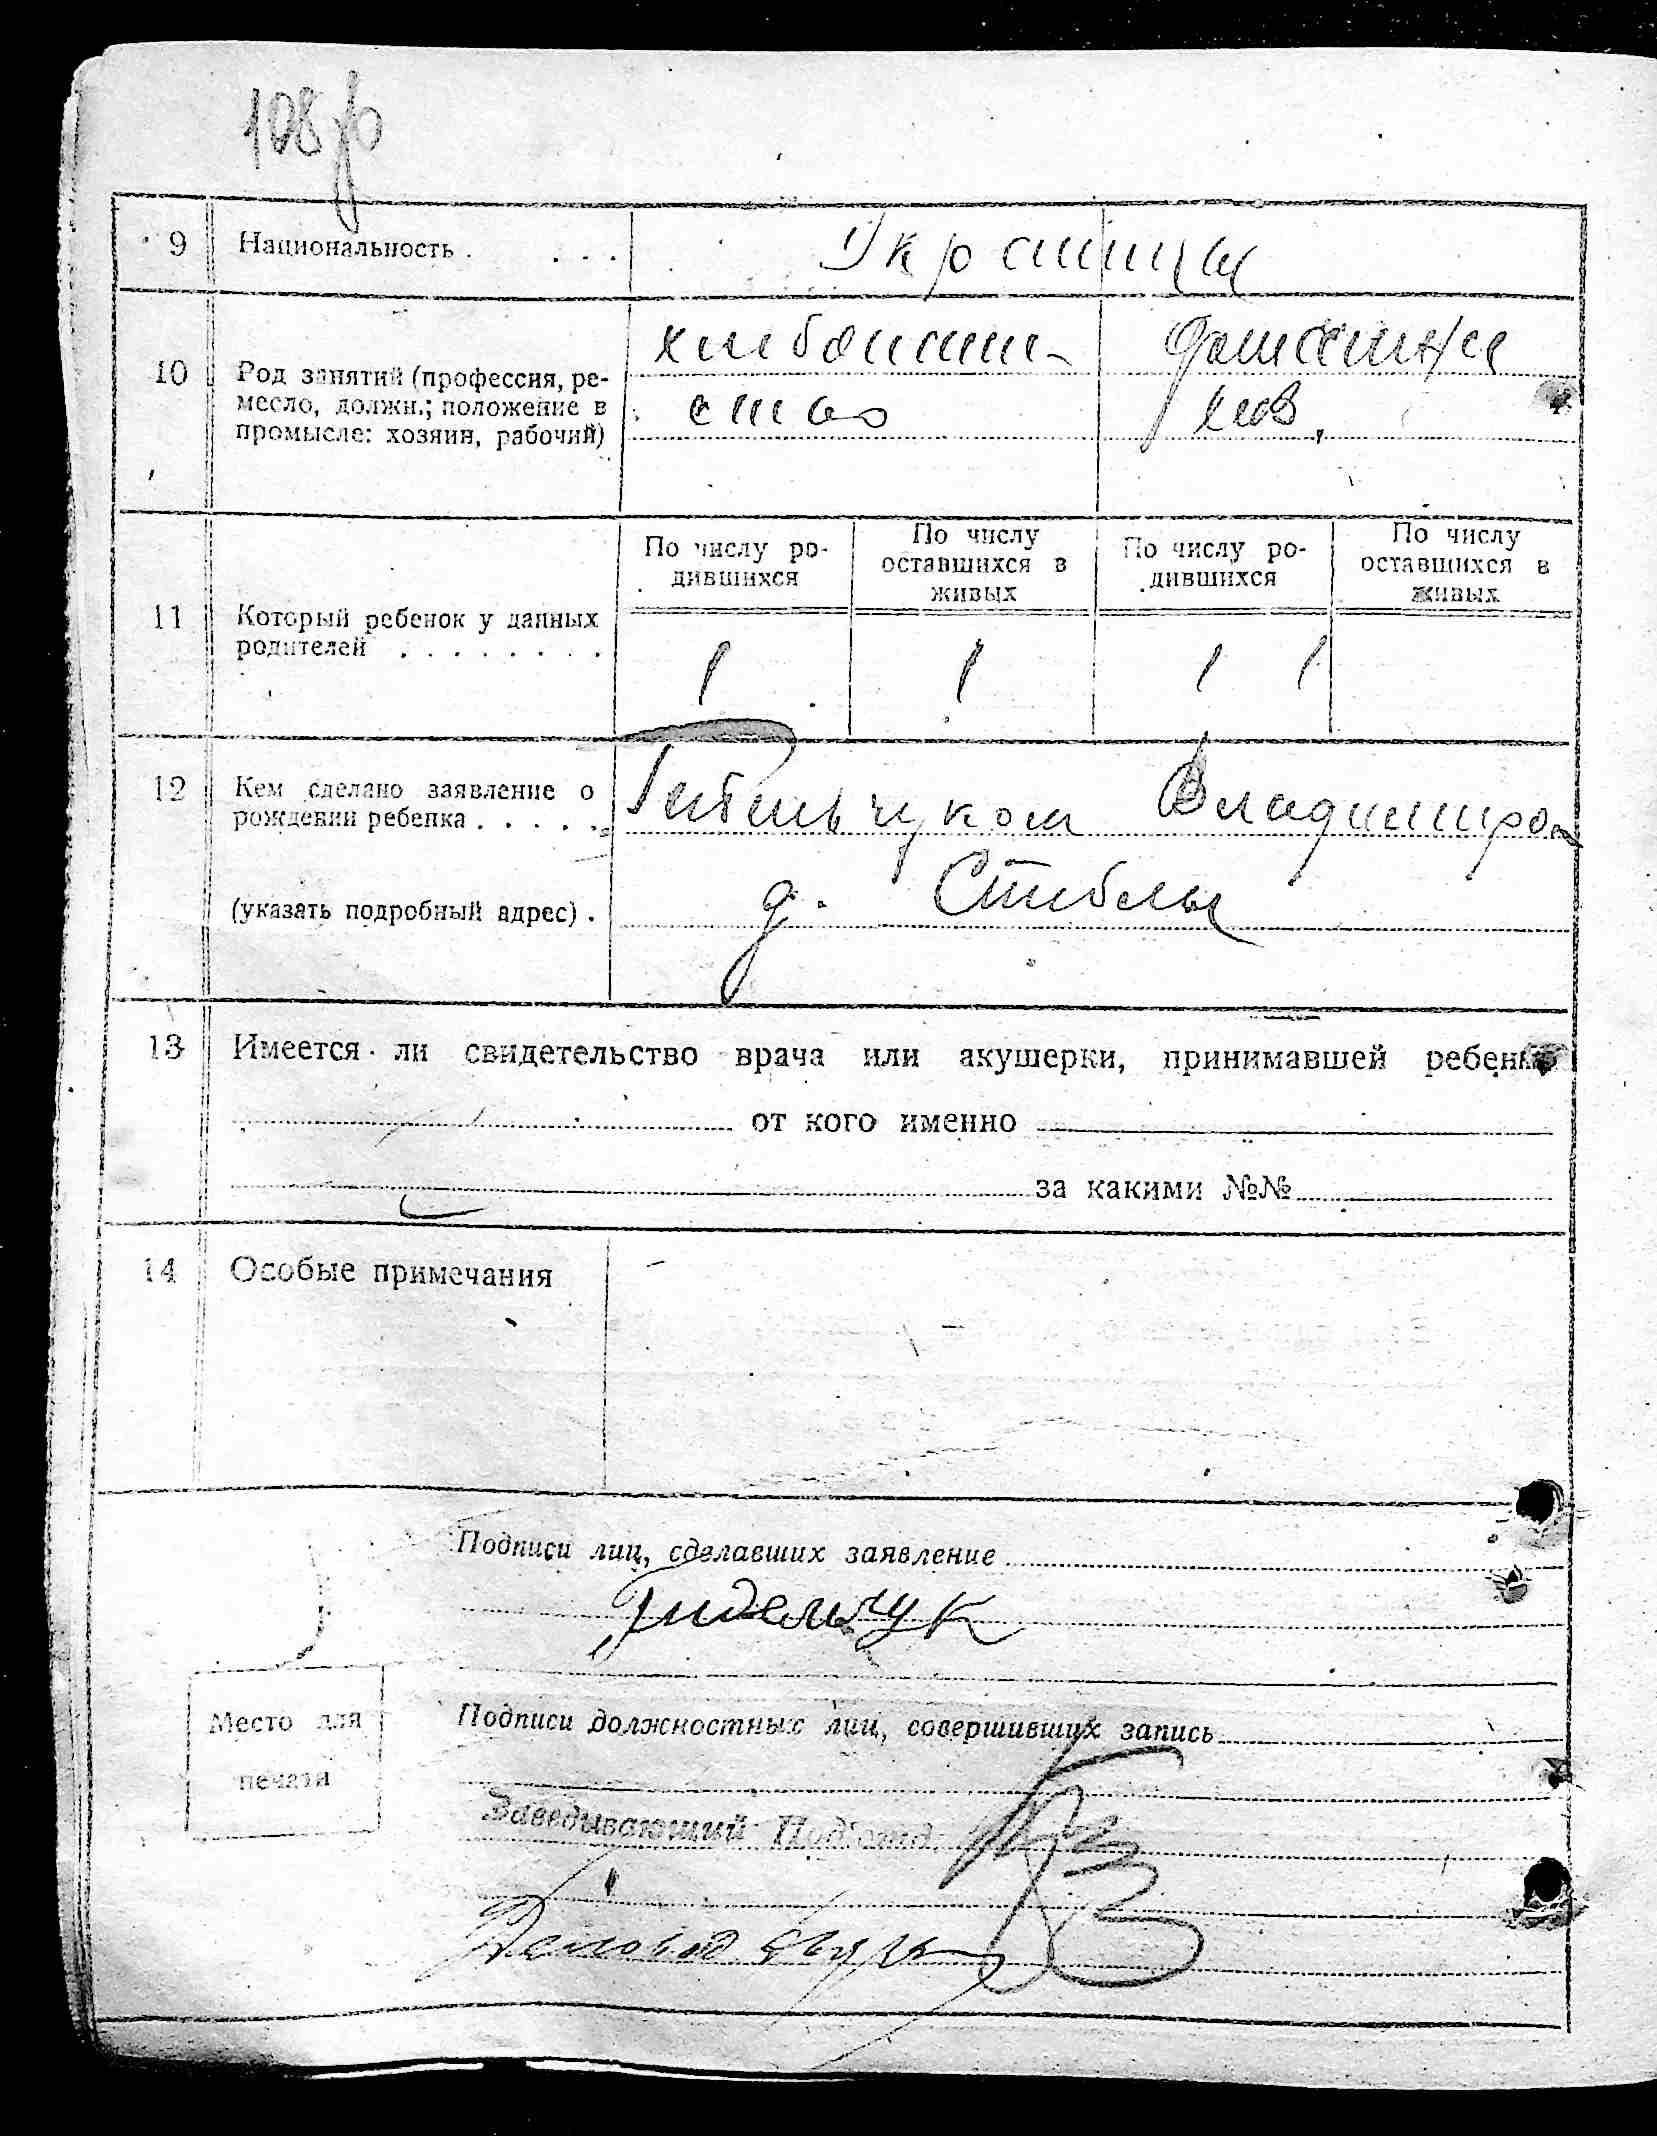 108 об
9 Национальность . . . . Украинцы
10 Род занятий (профессия, ре-
месло, должн.; положение в
промысле: хозяин, рабочий)
хлебопаше-
ство
домохозяй
11 Который ребенок у данных
родителей . . . . . . . .
По числу ро-
дившихся
По числу
оставшихся в
живых
По числу ро-
дившихся
По числу
оставшихся в
живых
1 1 1 1
12 Кем сделано заявление о
рождении ребенка . . . . .
Владимиром
(указать подробный адрес) .
д.
13 Имеется ли свидетельство врача или акушерки, принимавшей ребенка
от кого именно
за какими №№
14 Особые примечания –
Подписи лиц, сделавших заявление
Гидельчук
Место для
печати
Подписи должностных лиц, совершивших запись
Заведывающий Под'отд.
Деловод